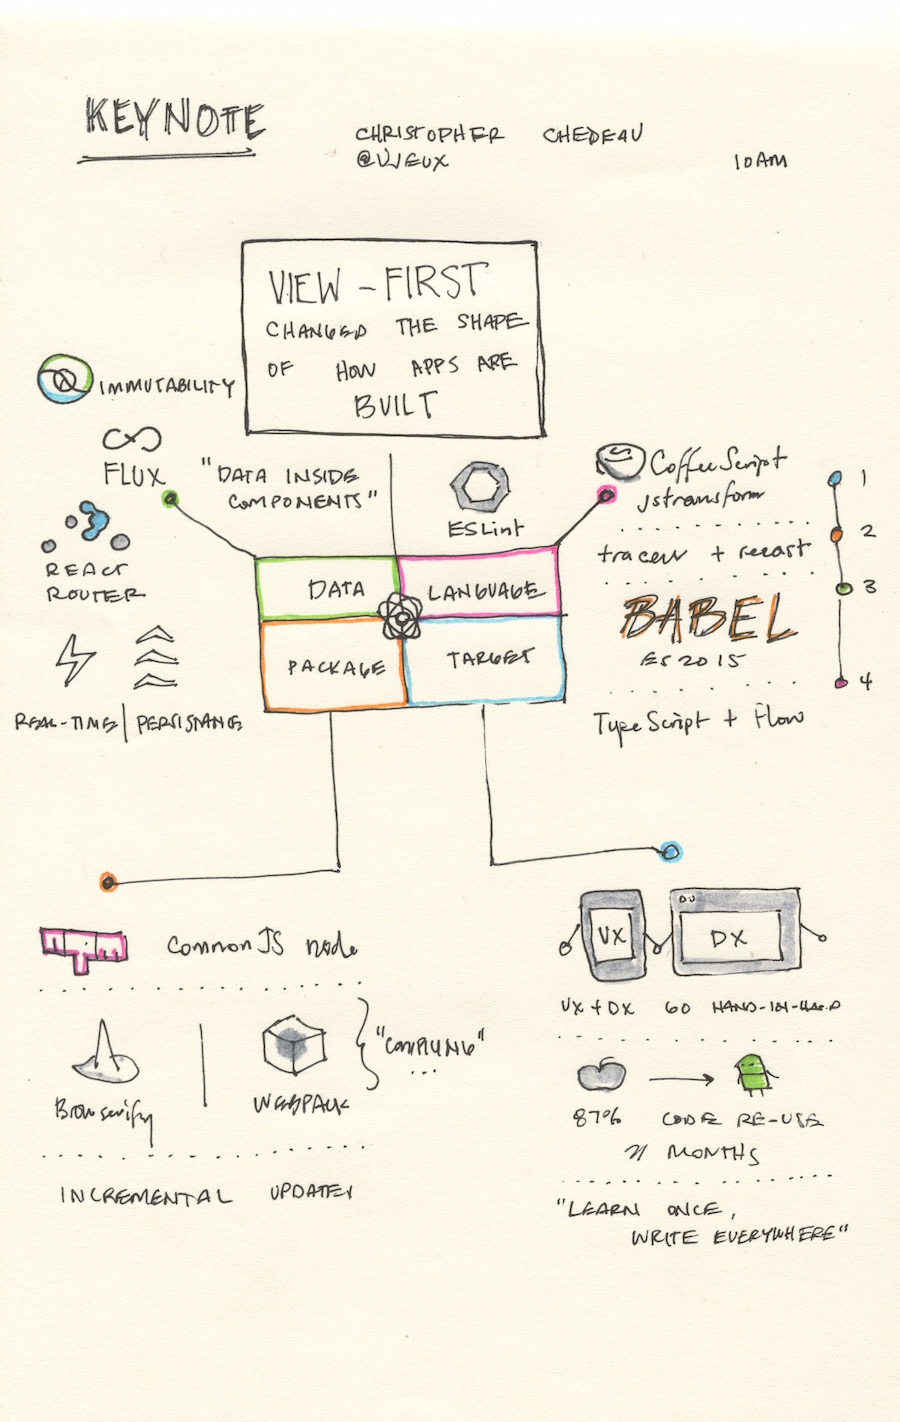 KEYNOTE
CHRISTOPHER CHEDEAU
@VJEUX
10AM
VIEW - FIRST
CHANGED THE SHAPE
OF HOW APPS ARE
BUILT
IMMUTABILITY
FLUX
"DATA INSIDE
COMPONENTS"
REACT
ROUTER
REAL-TIME | PERSISTANCE
ESLint
CoffeeScript
jstransform
traceur + recast
BABEL
ES2015
TypeScript + Flow
1
2
3
4
DATA
LANGUAGE
PACKAGE
TARGET
CommonJS node
Browserify
WEBPACK
"COMPILING"
...
INCREMENTAL UPDATES
UX
DX
UX + DX GO HAND-IN-HAND
87% CODE RE-USE
MONTHS
"LEARN ONCE,
WRITE EVERYWHERE"